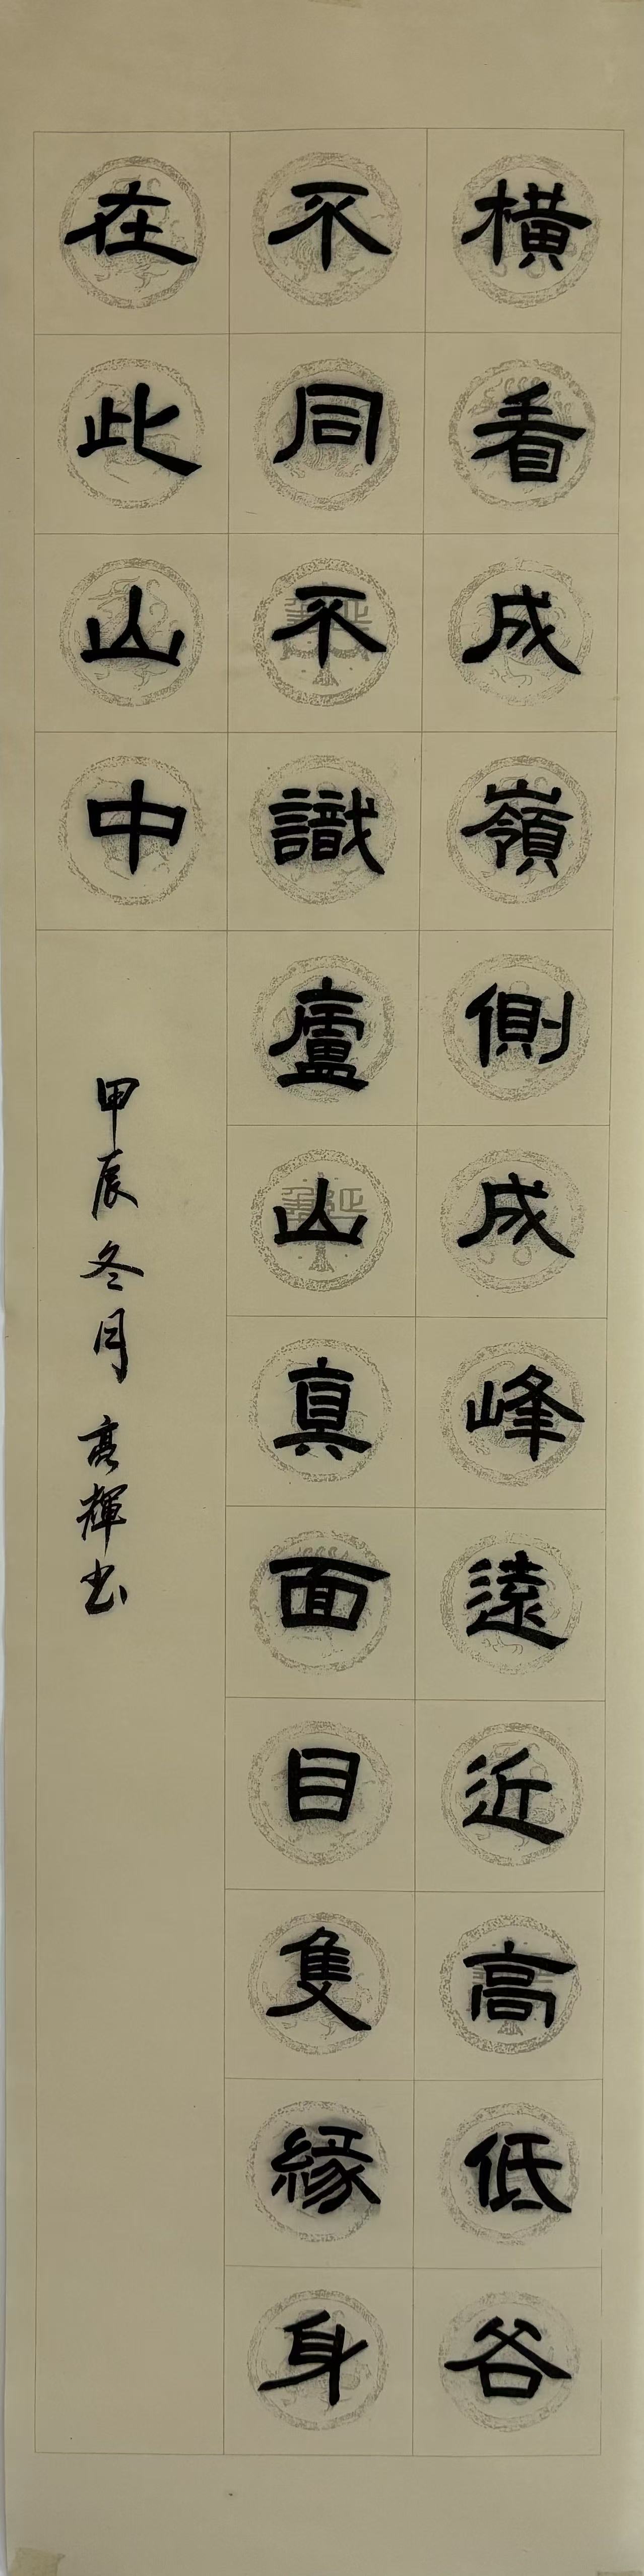 橫看成嶺側成峰遠近高低各
不同不識廬山真面目隻緣身
在此山中
甲辰冬月高輝书